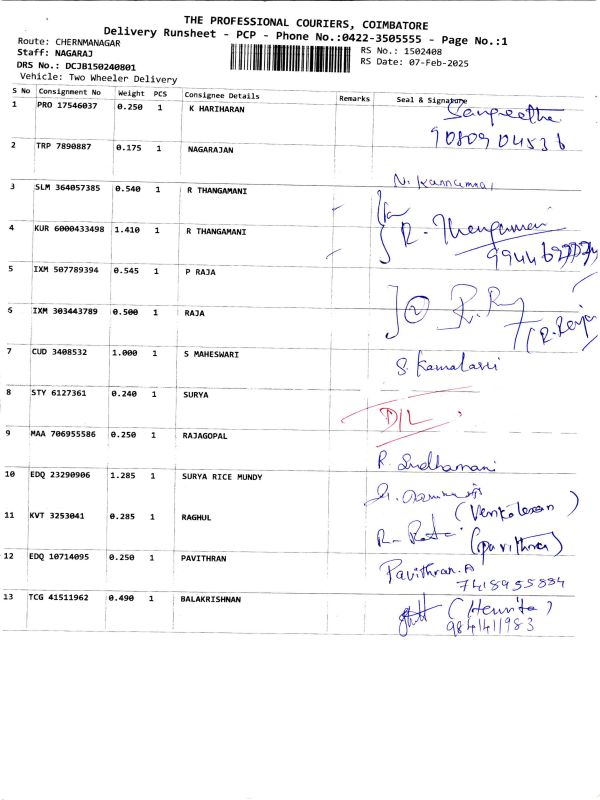 THE PROFESSIONAL COURIERS, COIMBATORE
Delivery Runsheet - PCP - Phone No.:0422-3505555 - Page No.:1
Route: CHERNMANAGAR
Staff: NAGARAJ
RS No.: 1502408
DRS No.: DCJB150240801
RS Date: 07-Feb-2025
Vehicle: Two Wheeler Delivery
S No Consignment No Weight PCS Consignee Details Remarks Seal & Signature
1 PRO 17546037 0.250 1 K HARIHARAN Sangeetha
9080904536
2 TRP 7890887 0.175 1 NAGARAJAN
N. Kannammal
3 SLM 364057385 0.540 1 R THANGAMANI
4 KUR 6000433498 1.410 1 R THANGAMANI R. Thangamani
5 IXM 507789394 0.545 1 P RAJA
6 IXM 303443789 0.500 1 RAJA 2
7 CUD 3408532 1.000 1 S MAHESWARI S. Kamalaveni
8 STY 6127361 0.240 1 SURYA D/L
9 MAA 706955586 0.250 1 RAJAGOPAL R. Sudhamani
10 EDQ 23290906 1.285 1 SURYA RICE MUNDY
11 KVT 3253041 0.285 1 RAGHUL (pavithra)
12 EDQ 10714095 0.250 1 PAVITHRAN Pavithran.A
7418955834
13 TCG 41511962 0.490 1 BALAKRISHNAN
9841411983